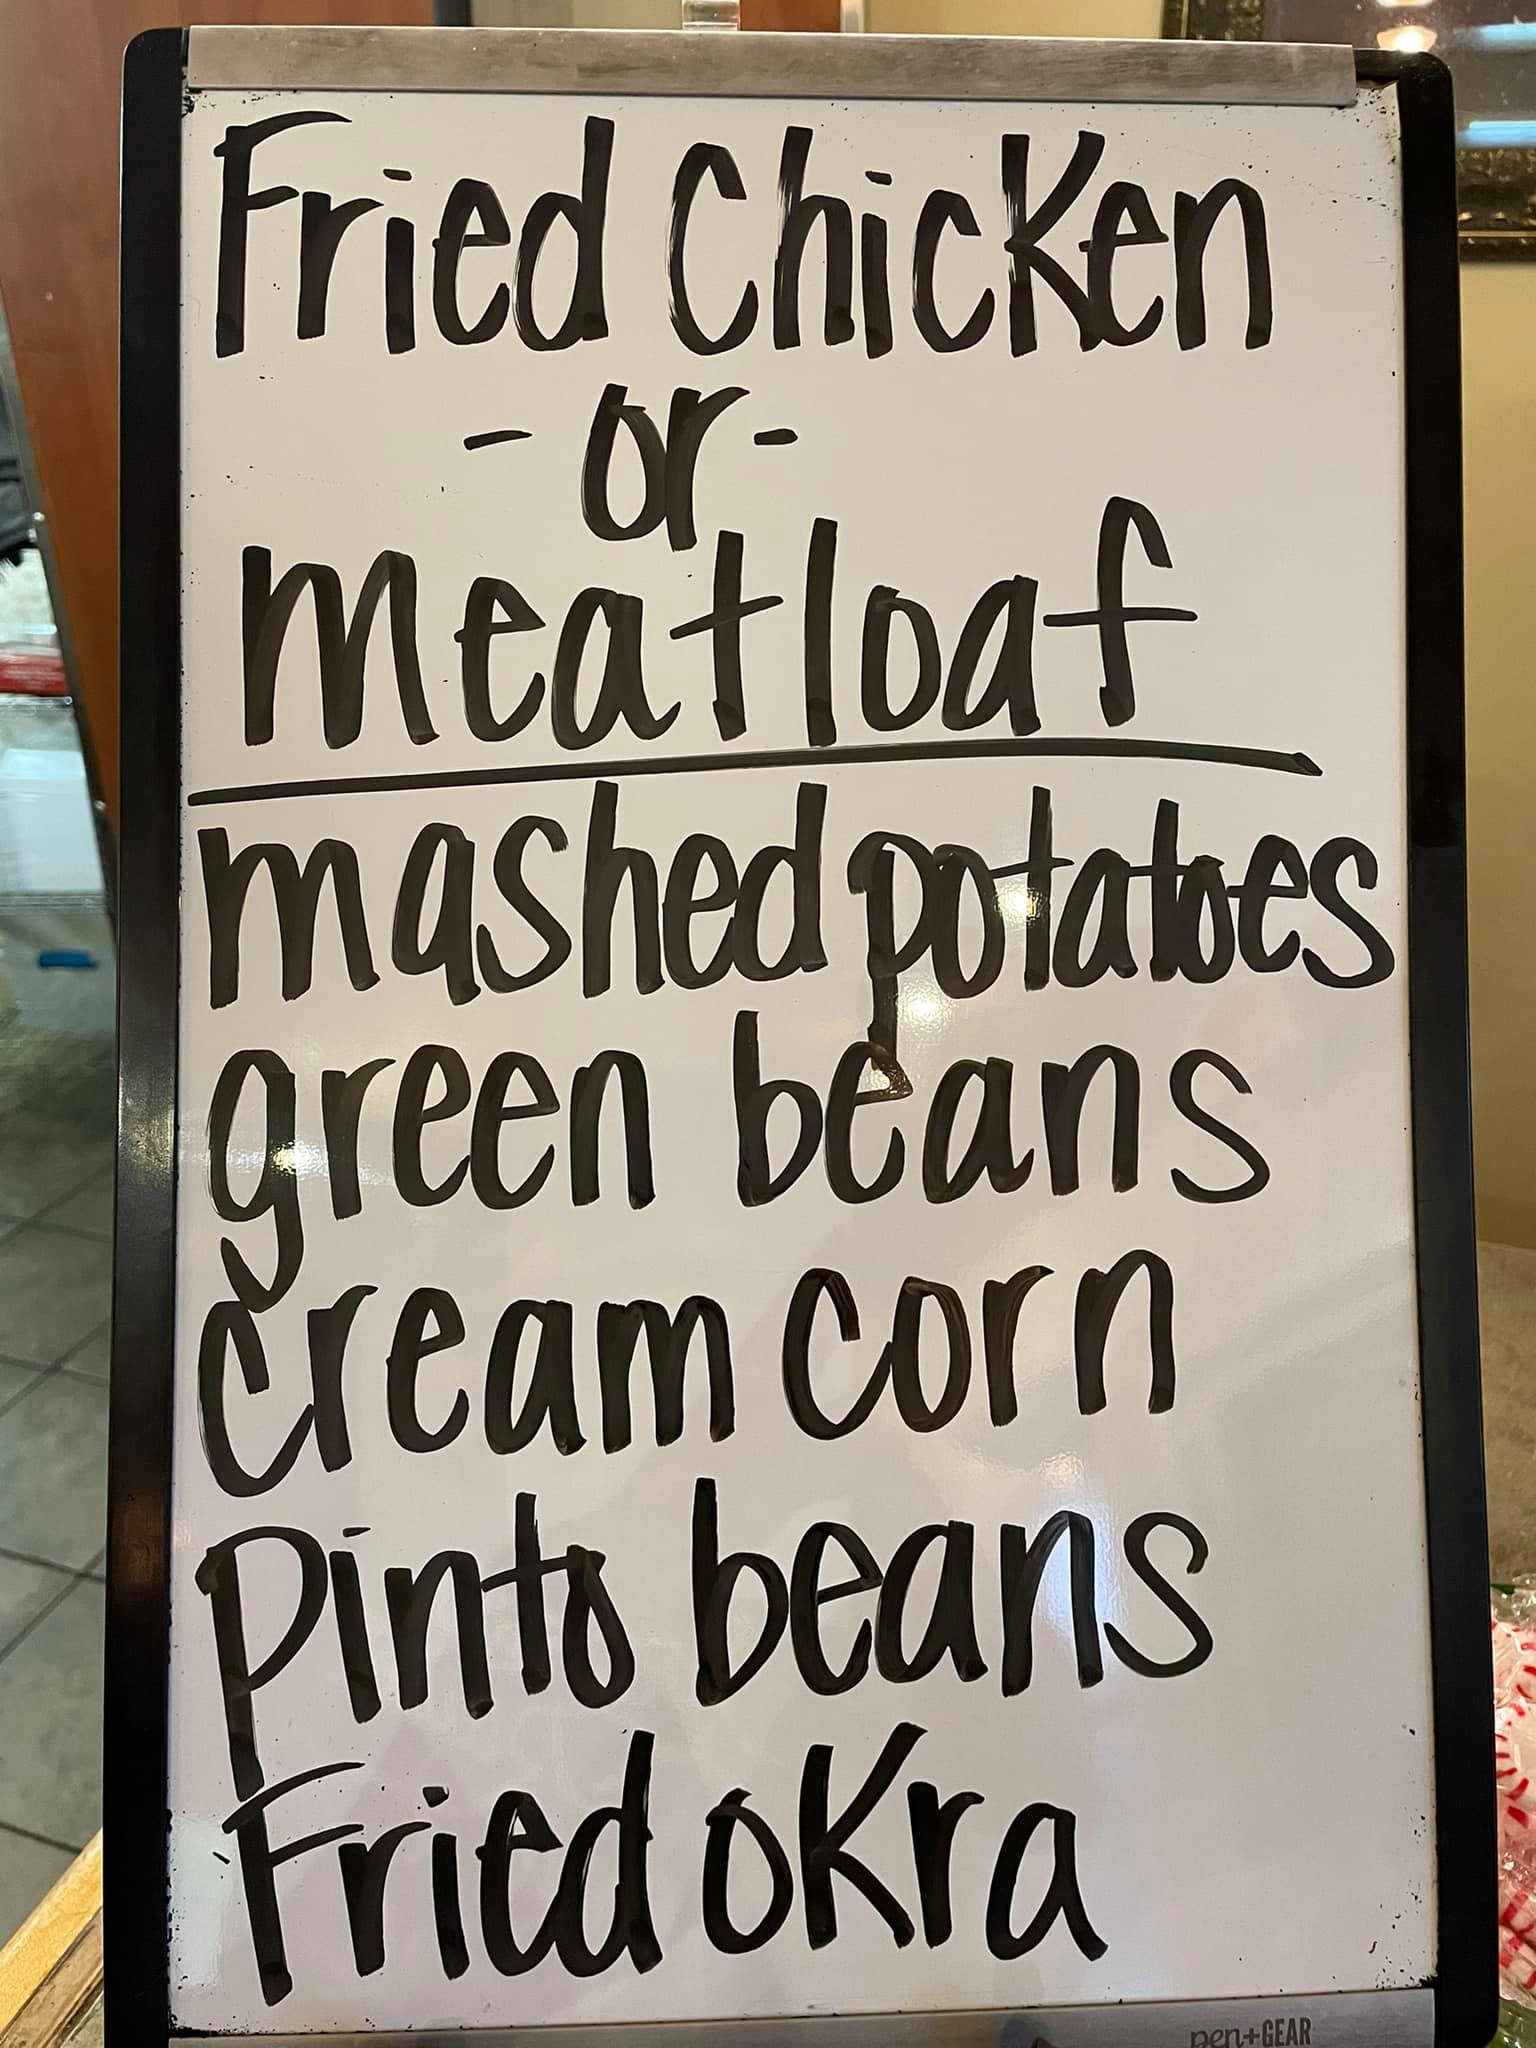 Fried Chicken
-or-
Meatloaf
mashed potatoes
green beans
cream corn
Pinto beans
Fried okra
pen+GEAR